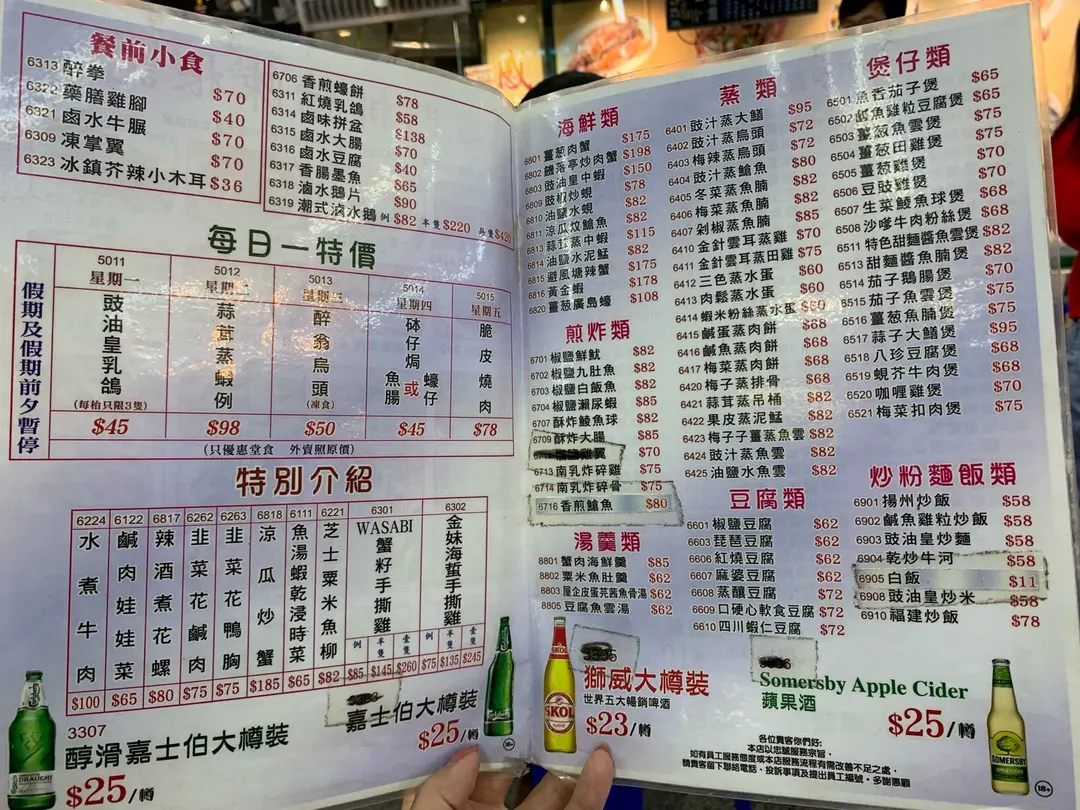 餐前小食
6313 醉拳 $70
6322 藥膳雞腳 $40
6321 鹵水牛𦟌 $70
6309 凍掌翼 $70
6323 冰鎮芥辣小木耳 $36
6706 香煎蠔餅 $78
6311 紅燒乳鴿 $58
6314 鹵味拼盆 $138
6315 鹵水大腸 $70
6316 鹵水豆腐 $40
6317 香腸墨魚 $65
6318 滷水鵝片 $90
6319 潮式滷水鵝 例 $82 半隻 $220 每隻 $420
每日一特價
假期及假期前夕暫停
5011 星期一 豉油皇乳鴿 (每枱只限3隻) $45
5012 星期二 蒜茸蒸蝦例 $98
5013 星期三 醉翁烏頭 (凍食) $50
5014 星期四 砵仔焗魚腸或蠔仔 $45
5015 星期五 脆皮燒肉 $78
(只優惠堂食 外賣照原價)
特別介紹
6224 水煮牛肉 $100
6122 鹹肉娃娃菜 $65
6817 辣酒煮花螺 $80
6262 韭菜花鹹肉 $75
6263 韭菜花鴨胸 $75
6818 涼瓜炒蟹 $185
6111 魚湯蝦乾浸時菜 $65
6221 芝士粟米魚柳 $82
6301 WASABI 蟹籽手撕雞 例 $85 半隻 $145 壹隻 $260
6302 金妹海蜇手撕雞 例 $75 半隻 $135 壹隻 $245
3307
醇滑嘉士伯大樽裝
$25/樽
嘉士伯大樽裝
$25/樽
海鮮類
6801 薑葱肉蟹 $175
6802 鏹落亭炒肉蟹 $198
6803 豉油皇中蝦 $150
6809 豉椒炒蜆 $78
6810 油鹽水蜆 $78
6811 涼瓜炆鱠魚 $115
6813 蒜茸蒸中蝦
6814 油鹽水泥鯭 $82
6815 避風塘辣蟹 $175
6816 黃金蝦 $178
6820 薑葱廣島蠔 $108
煎炸類
6701 椒鹽鮮魷 $82
6702 椒鹽九肚魚 $82
6703 椒鹽白飯魚 $82
6704 椒鹽瀨尿蝦 $85
6707 酥炸鯪魚球 $82
6709 酥炸大腸 $85
$70
6713 南乳炸碎雞 $75
6714 南乳炸碎骨 $75
6716 香煎鱠魚 $80
湯羹類
8801 蟹肉海鮮羹 $85
8802 粟米魚肚羹 $62
8803 屋企皮蛋芫茜魚骨湯 $62
8805 豆腐魚雲湯 $62
獅威大樽裝
世界五大暢銷啤酒
$23/樽
蒸類
6401 豉汁蒸大鱔 $95
6402 豉汁蒸烏頭 $72
6403 梅辣蒸烏頭 $72
6404 豉汁蒸鱠魚 $80
6405 冬菜蒸魚腩 $82
6406 梅菜蒸魚腩 $82
6407 剁椒蒸魚腩 $85
6410 金針雲耳蒸雞 $70
6411 金針雲耳蒸田雞 $75
6412 三色蒸水蛋 $60
6413 肉鬆蒸水蛋 $60
6414 蝦米粉絲蒸水蛋 $60
6415 鹹蛋蒸肉餅 $68
6416 鹹魚蒸肉餅 $68
6417 梅菜蒸肉餅 $68
6420 梅子蒸排骨 $68
6421 蒜茸蒸吊桶 $82
6422 果皮蒸泥鯭 $82
6423 梅子子薑蒸魚雲 $82
6424 豉汁蒸魚雲 $82
6425 油鹽水魚雲 $82
豆腐類
6601 椒鹽豆腐 $62
6603 琵琶豆腐 $62
6606 紅燒豆腐 $62
6607 麻婆豆腐 $62
6608 蒸釀豆腐 $72
6609 口硬心軟食豆腐 $72
6610 四川蝦仁豆腐 $72
Somersby Apple Cider
蘋果酒
$25/樽
煲仔類
6501 魚香茄子煲 $65
6502 鹹魚雞粒豆腐煲 $65
6503 薑葱魚雲煲 $75
6504 薑葱田雞煲 $75
6505 薑葱雞煲 $70
6506 豆豉雞煲 $70
6507 生菜鯪魚球煲 $68
6508 沙嗲牛肉粉絲煲 $68
6511 特色甜麵醬魚雲煲 $82
6513 甜麵醬魚腩煲 $82
6514 茄子鵝腸煲 $70
6515 茄子魚雲煲 $75
6516 薑葱魚腩煲 $75
6517 蒜子大鱔煲 $95
6518 八珍豆腐煲 $68
6519 蜆芥牛肉煲 $68
6520 咖喱雞煲 $70
6521 梅菜扣肉煲 $75
炒粉麵飯類
6901 揚州炒飯 $58
6902 鹹魚雞粒炒飯 $58
6903 豉油皇炒麵 $58
6904 乾炒牛河 $58
6905 白飯 $11
6908 豉油皇炒米 $58
6910 福建炒飯 $78
各位貴客你們好:
本店以忠誠服務宗旨,
如有員工服務態度或本店服務流程有需改善不足之處,
請貴客留下聯絡電話、投訴事項及提出員工編號,多謝惠顧
18+
SKOL
SOMERSBY
DRAUGHT
18+